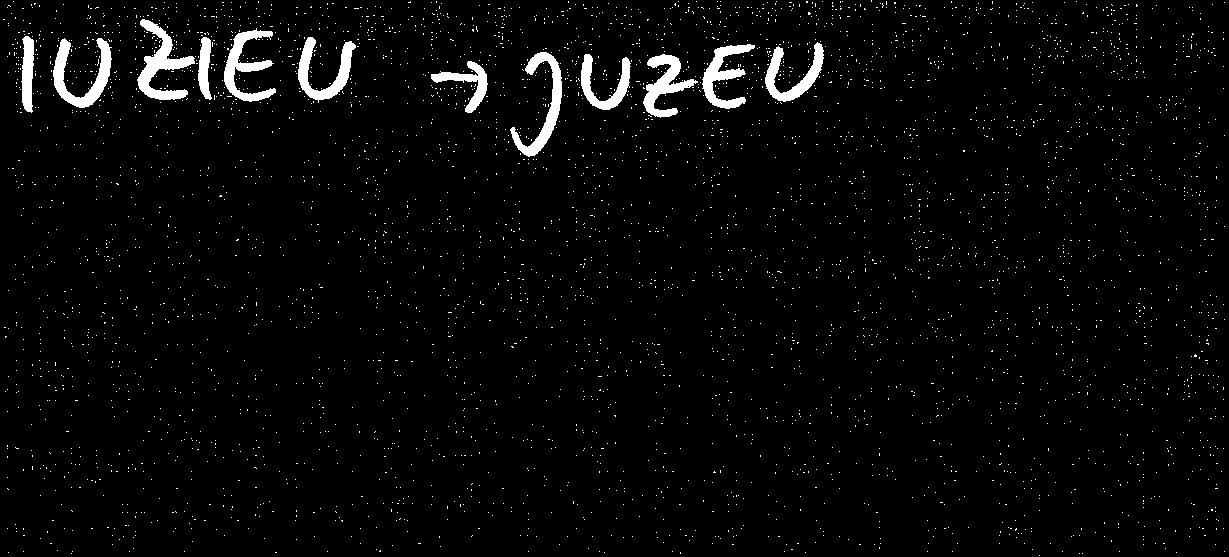 IUZIEU → JUZEU